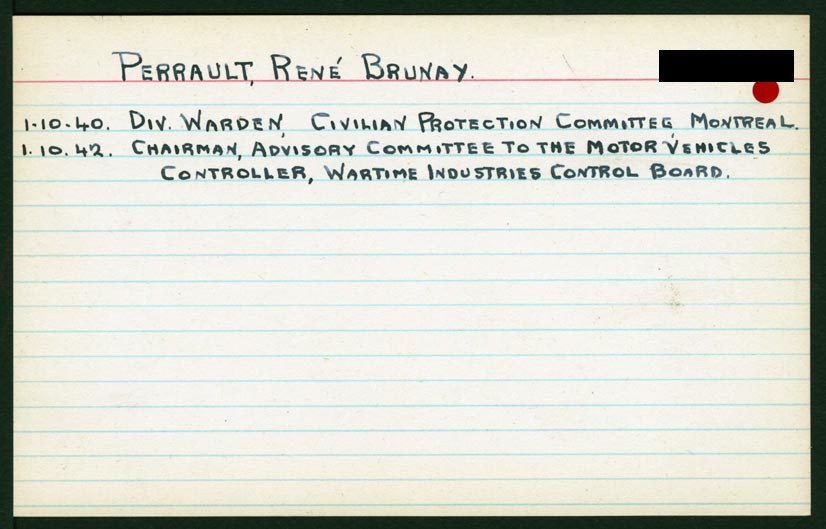 PERRAULT, RENÉ BRUNAY.
1-10-40. DIV. WARDEN, CIVILIAN PROTECTION COMMITTEE, MONTREAL.
1.10.42. CHAIRMAN, ADVISORY COMMITTEE TO THE MOTOR VEHICLES
CONTROLLER, WARTIME INDUSTRIES CONTROL BOARD.